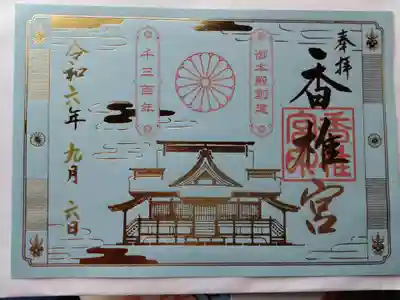 奉拝
香椎宮
御本殿創建
千三百年
令和六年 九月 六日